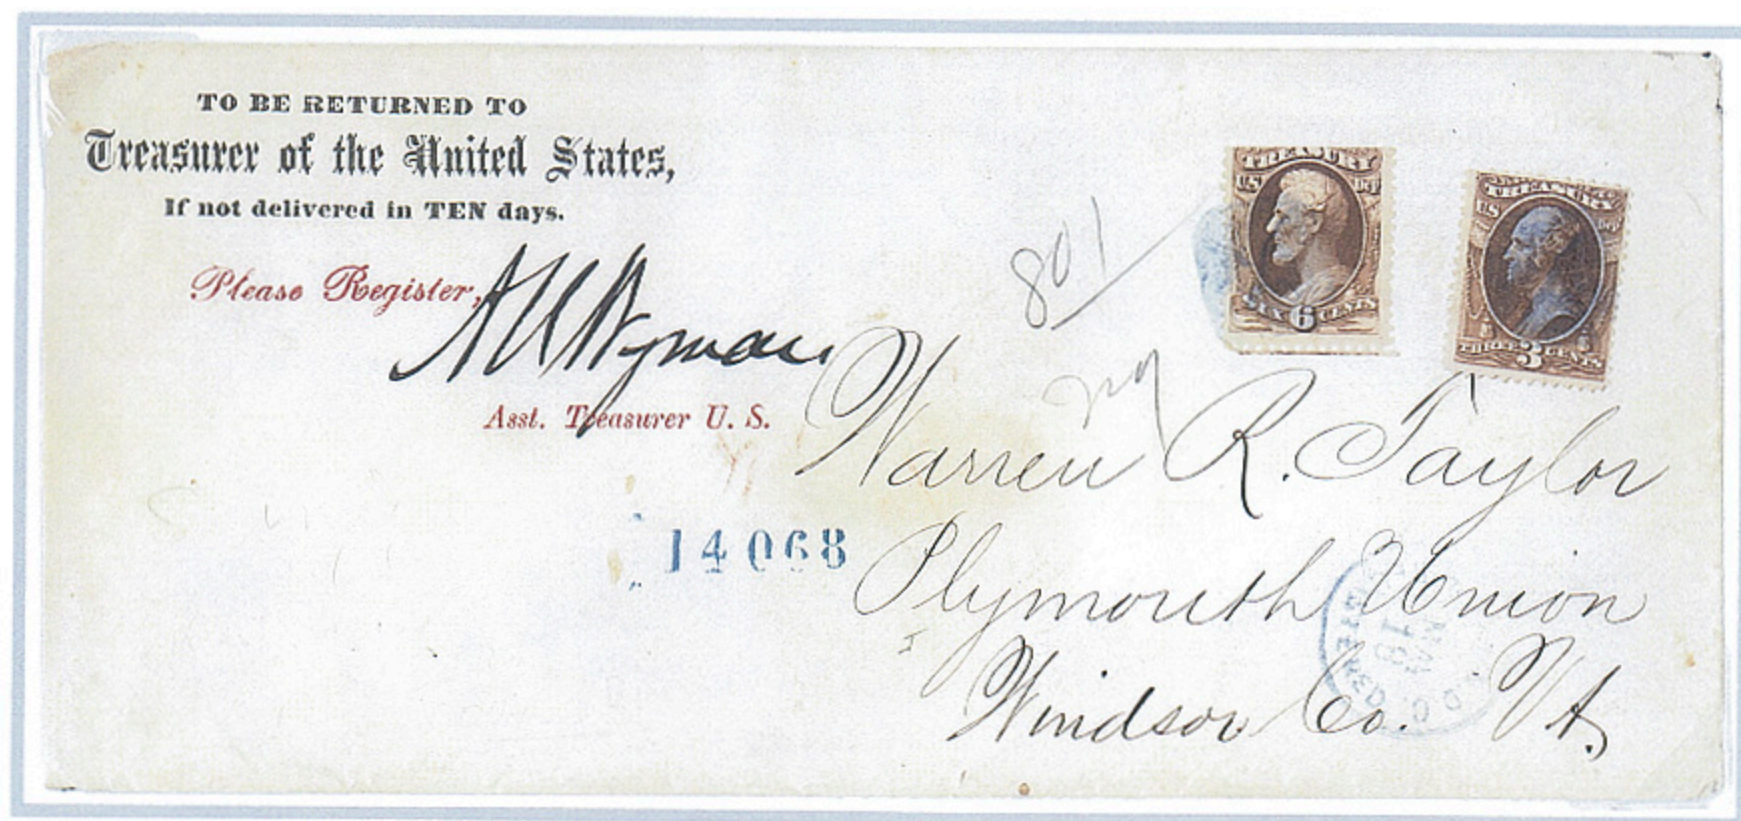 TO BE RETURNED TO
Treasurer of the United States,
If not delivered in TEN days.
Please Register,
A U Wyman
Asst. Treasurer U. S.
801
TREASURY
U.S. Dep
SIX 6 CENTS
TREASURY
U.S. Dep
THREE 3 CENTS
14068
Warren R. Taylor
Plymouth Union
Windsor Co. Vt.
MAY
D.C.